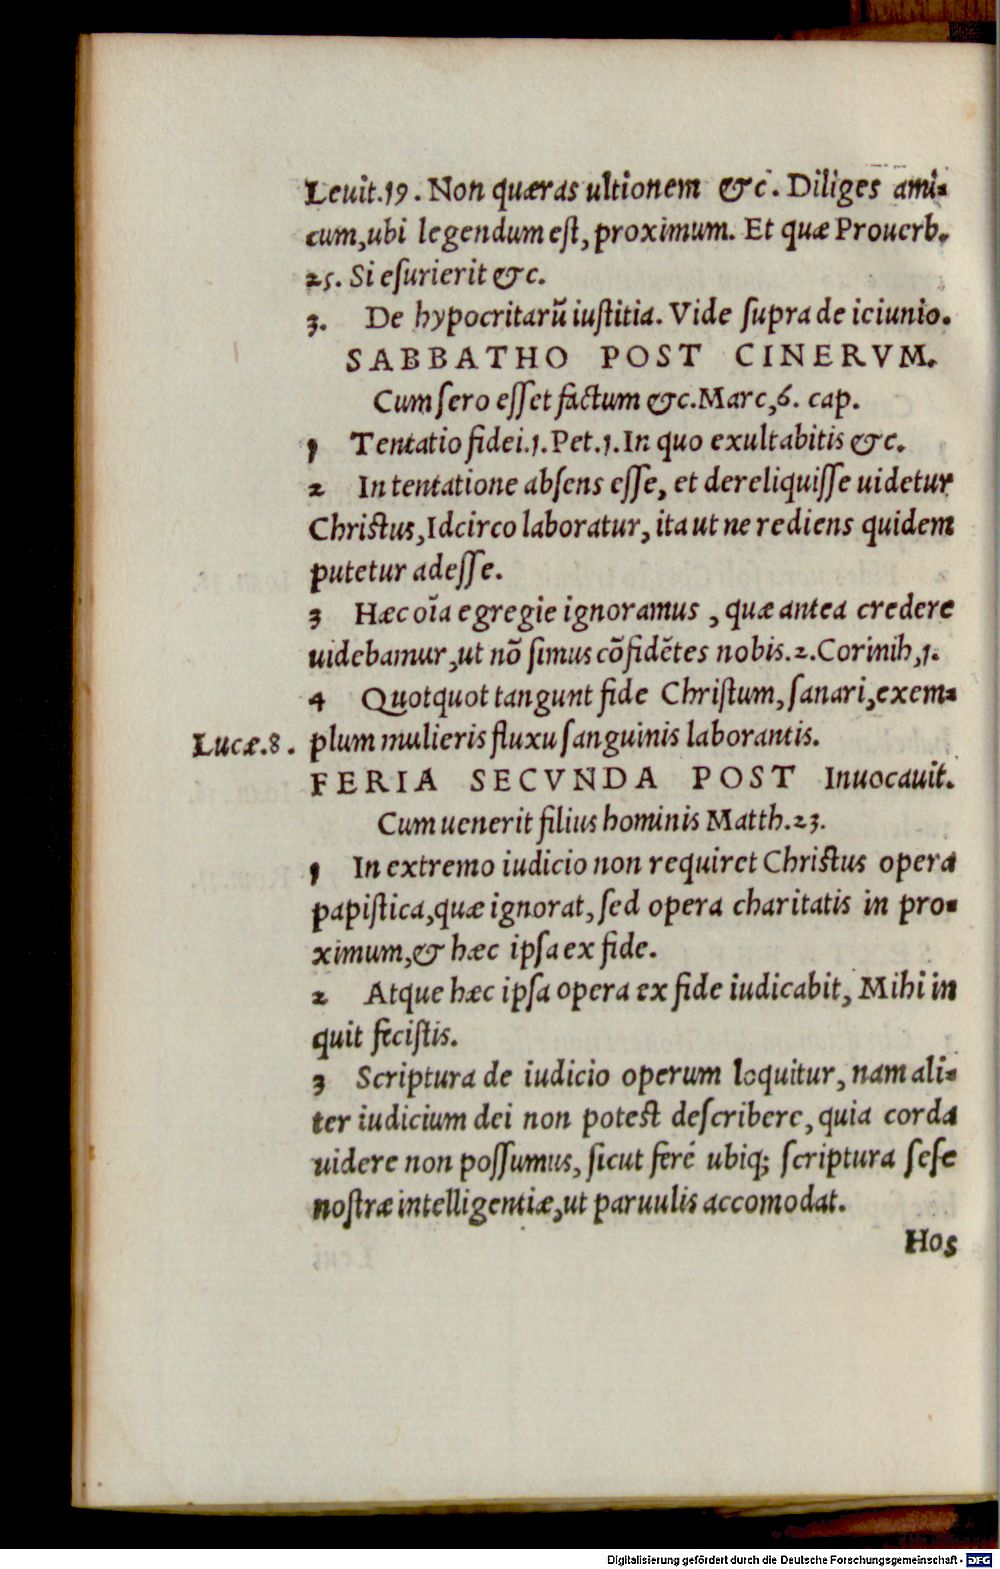 Leuit.19. Non quæras ultionem &c. Diliges ami-
cum,ubi legendum eſt, proximum. Et quæ Prouerb.
25. Si eſurierit &c.
3. De hypocritarũ iuſtitia. Vide ſupra de ieiunio.
SABBATHO POST CINERVM.
Cum ſero eſſet factum &c. Marc,6. cap.
1 Tentatio fidei.1.Pet.1.In quo exultabitis &c.
2 In tentatione abſens eſſe, et dereliquiſſe uidetur
Chriſtus,Idcirco laboratur, ita ut ne rediens quidem
putetur adeſſe.
3 Hæc oĩa egregie ignoramus , quæ antea credere
uidebamur,ut nõ ſimus cõfidẽtes nobis.2.Corinih,1.
4 Quotquot tangunt fide Chriſtum, ſanari,exem-
Lucæ.8. plum mulieris fluxu ſanguinis laborantis.
FERIA SECVNDA POST Inuocauit.
Cum uenerit filius hominis Matth.23.
1 In extremo iudicio non requiret Chriſtus opera
papiſtica,quæ ignorat, ſed opera charitatis in pro-
ximum,& hæc ipſa ex fide.
2 Atque hæc ipſa opera ex fide iudicabit, Mihi in
quit feciſtis.
3 Scriptura de iudicio operum loquitur, nam ali-
ter iudicium dei non poteſt deſcribere, quia corda
uidere non poſſumus, ſicut ferè ubiq; ſcriptura ſeſe
noſtræ intelligentiæ,ut paruulis accomodat.
Hos
Digitalisierung gefördert durch die Deutsche Forschungsgemeinschaft - DFG